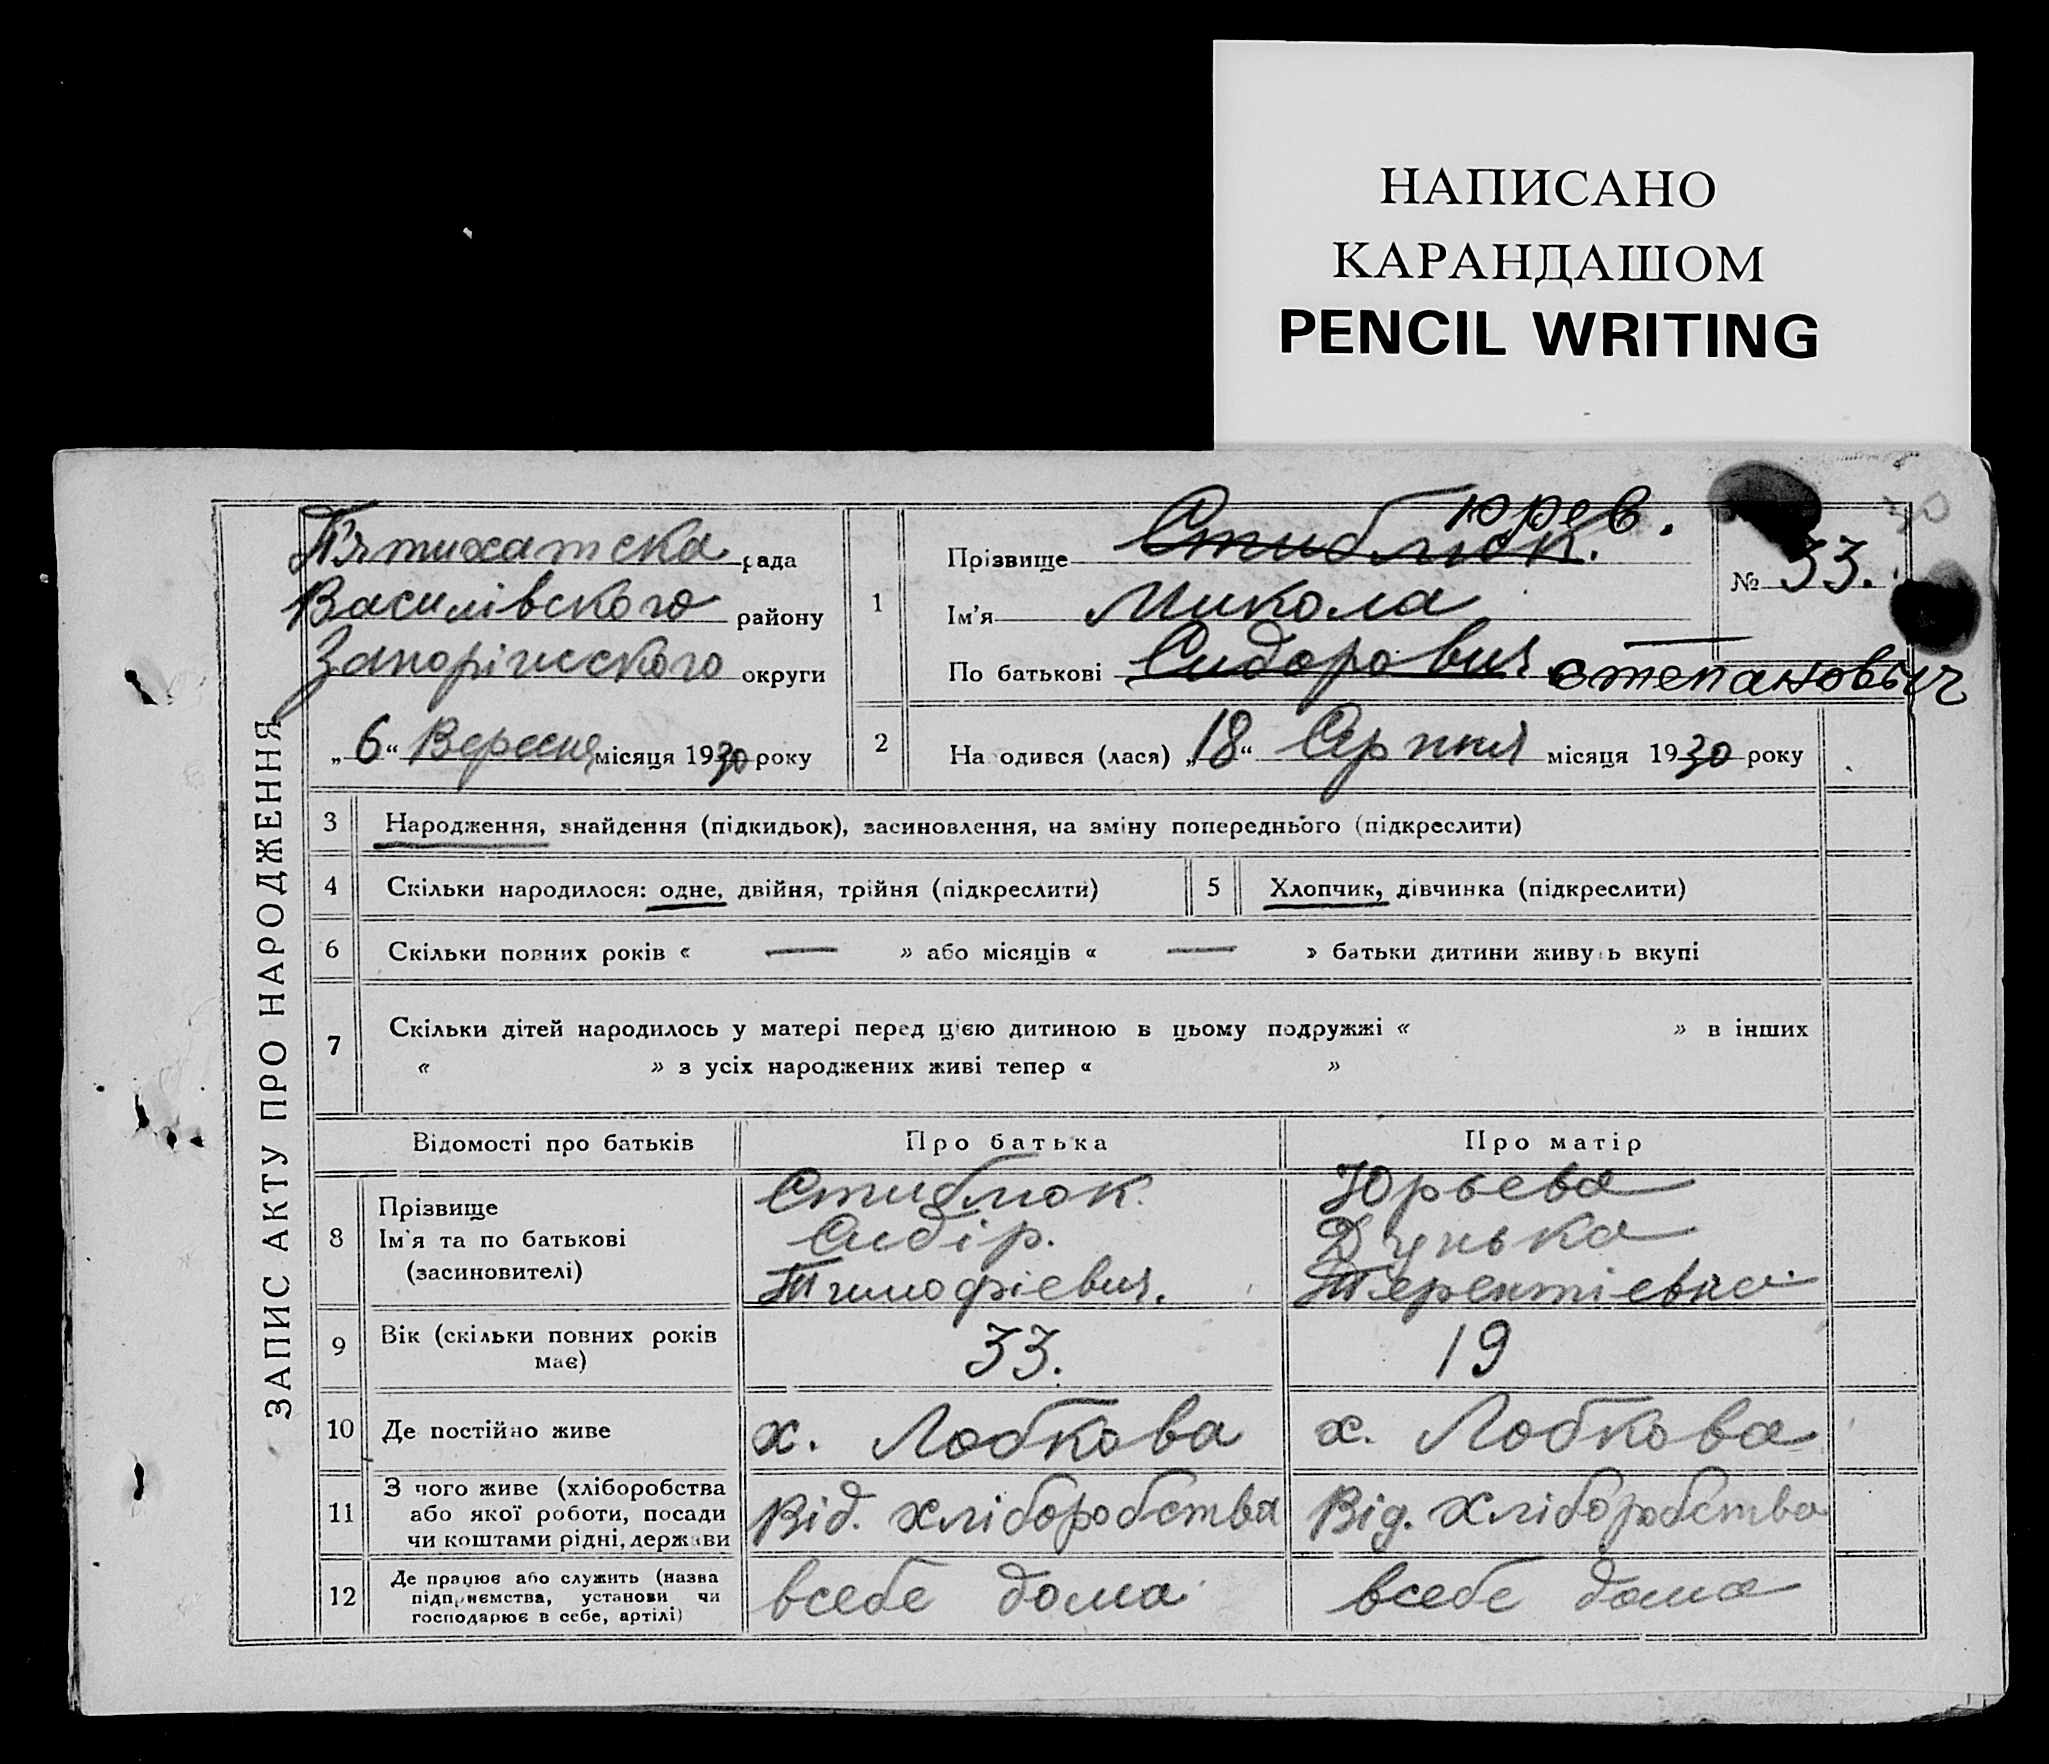 НАПИСАНО
КАРАНДАШОМ
PENCIL WRITING
ЗАПИС АКТУ ПРО НАРОДЖЕННЯ
П'ятихатска рада
Василівского району
Запоріжского округи
„6“ Вересня місяця 1930 року
1
Юрев.
Прізвище Стиблюк.
Ім'я Микола
По батькові Сидорович Степанович
№ 33.
2 На одився (лася) „18“ Серпня місяця 1930 року
3 Народження, знайдення (підкидьок), засиновлення, на зміну попереднього (підкреслити)
4 Скільки народилося: одне, двійня, трійня (підкреслити) 5 Хлопчик, дівчинка (підкреслити)
6 Скільки повних років « — » або місяців « — » батьки дитини живу ь вкупі
7 Скільки дітей народилось у матері перед цією дитиною в цьому подружжі « » в інших
« » з усіх народжених живі тепер « »
Відомості про батьків Про батька Про матір
8 Прізвище Стиблюк. Юрьева
Ім'я та по батькові Сидір. Дунька
(засиновителі) Тимофієвич. Терентієвна.
9 Вік (скільки повних років має) 33. 19
10 Де постійно живе х. Лобкова х. Лобкова
11 З чого живе (хліборобства
або якої роботи, посади Від. хліборобства Від. хліборобства
чи коштами рідні, держави
12 Де працює або служить (назва
підприємства, установи чи всебе дома всебе дома
господарює в себе, артілі)